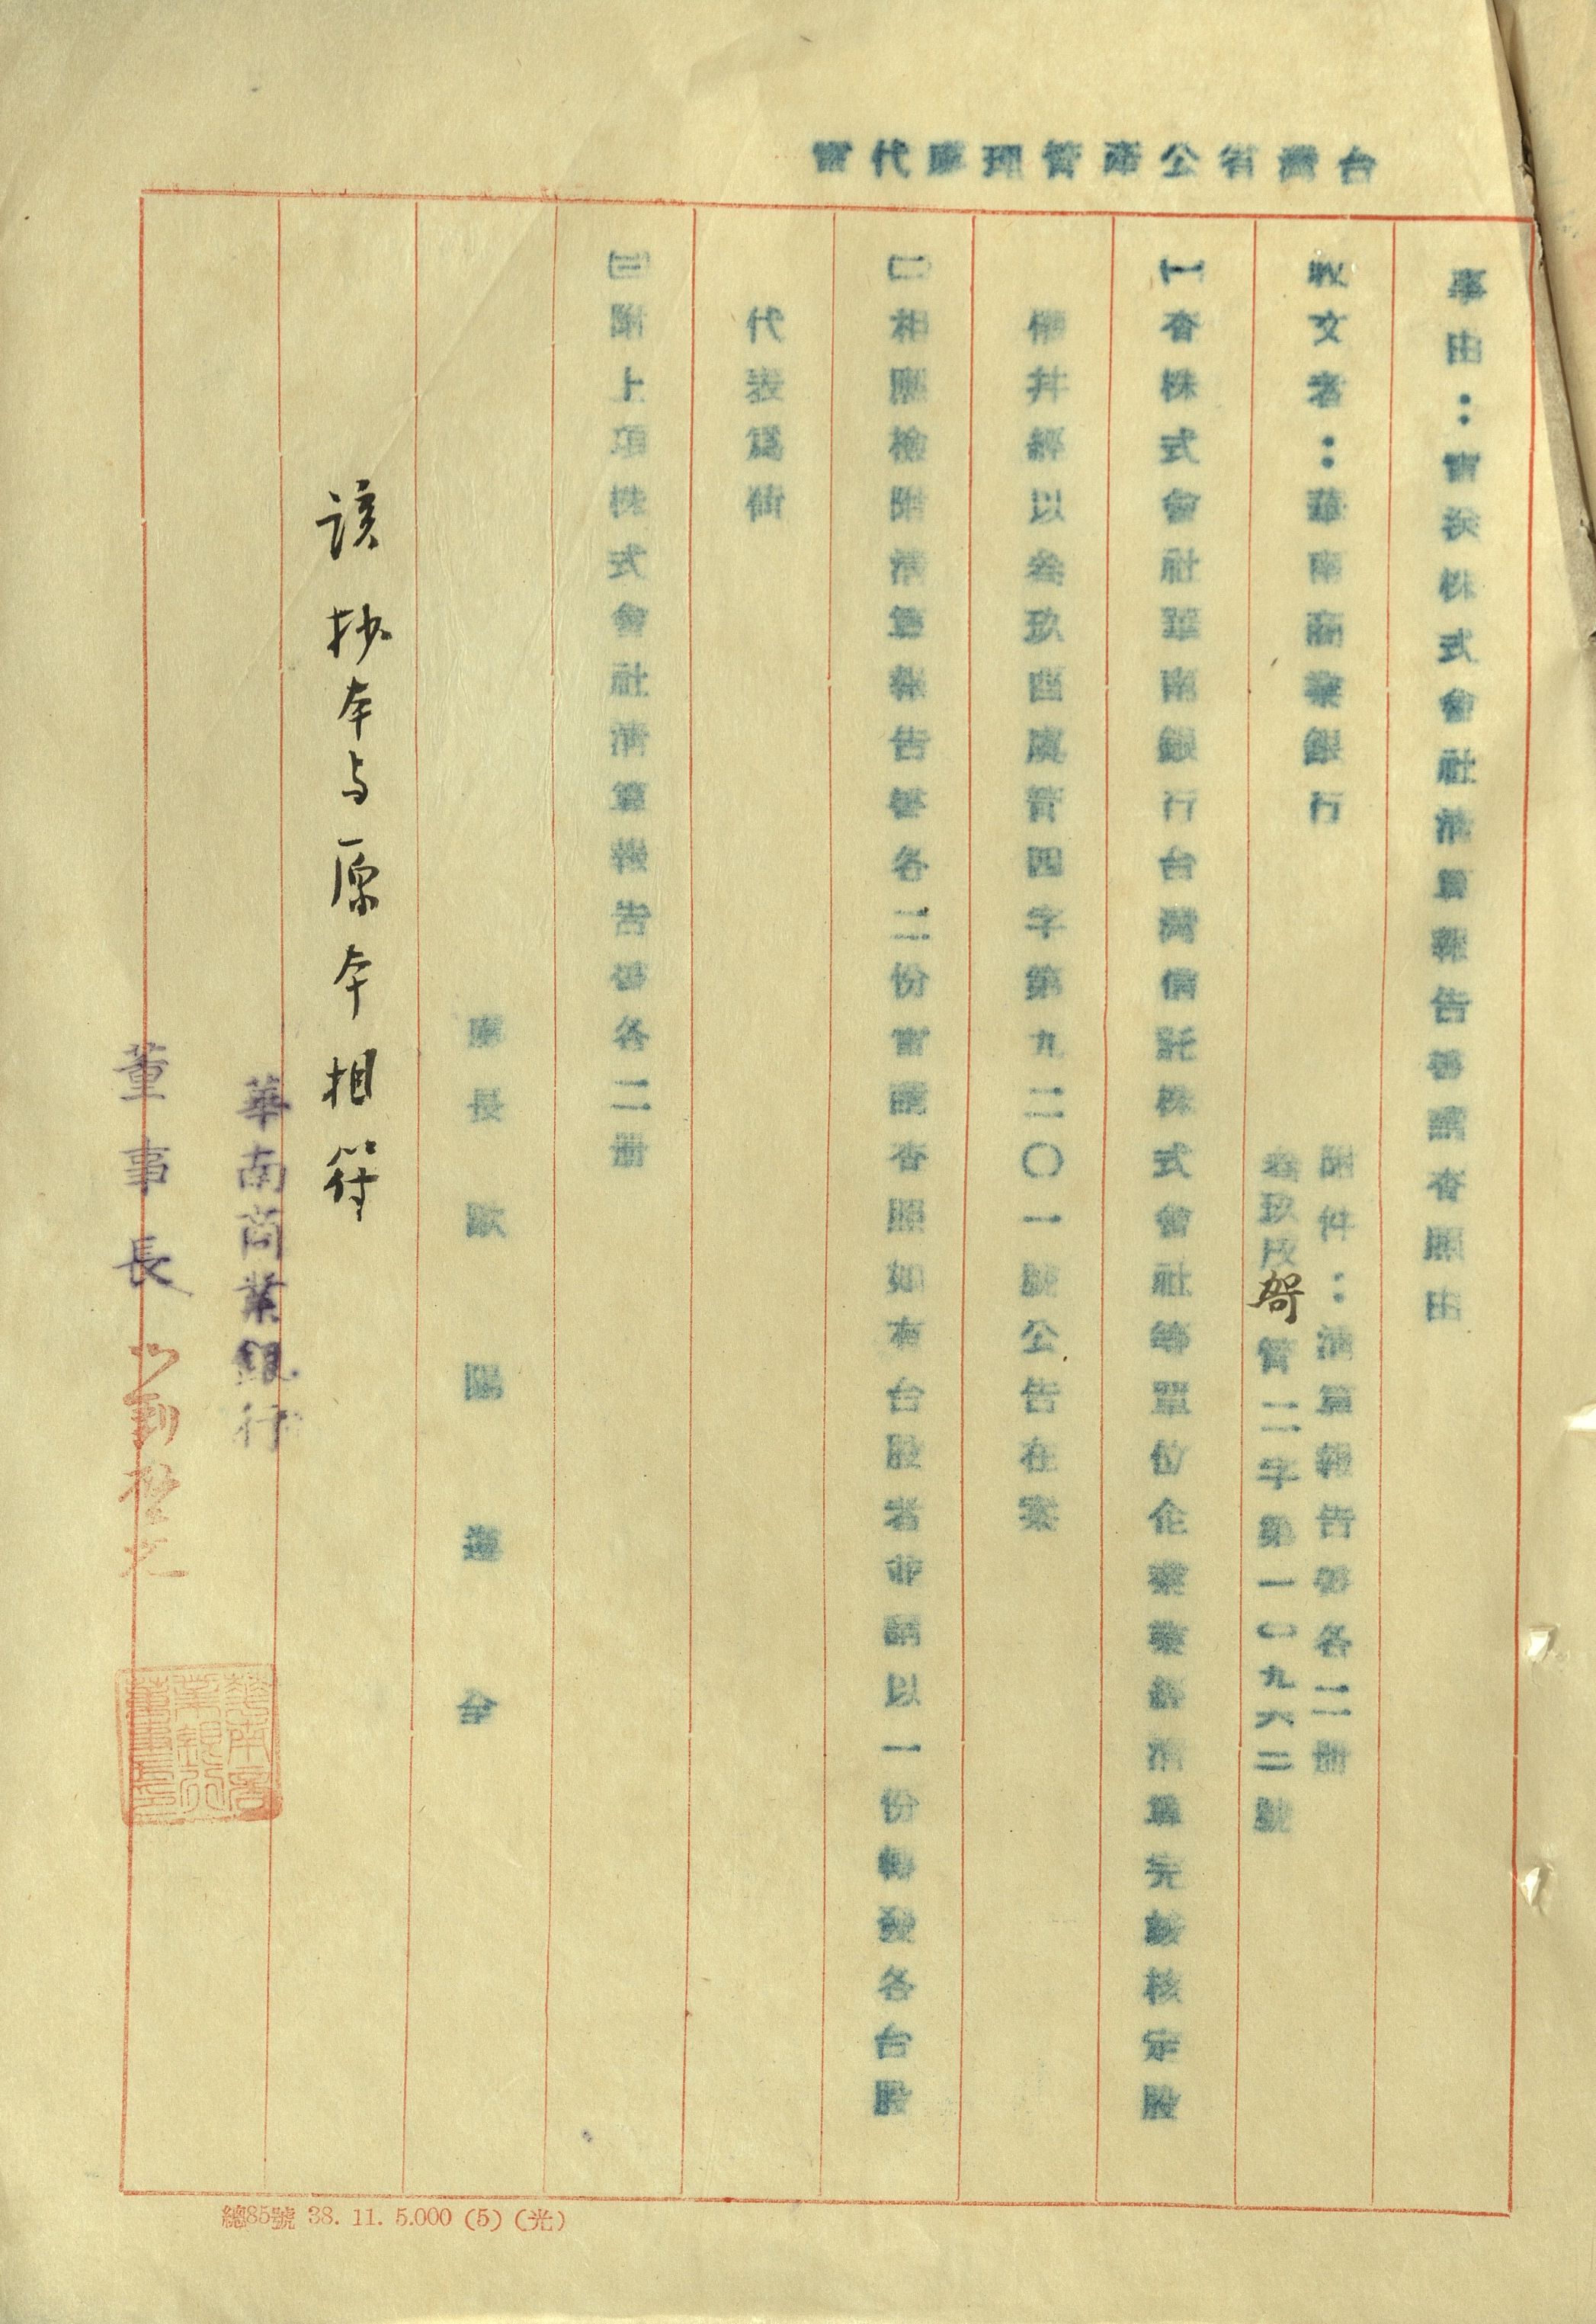 台灣省公產管理處代電
事由：電送株式會社清算報告書請查照由
收文者：華南商業銀行
附件：清算報告書各二冊
叁玖戌 管二字第一〇九六二號
(一)查株式會社華南銀行台灣信託株式會社等單位企業業經清算完竣核定股
權并經以叁玖酉虞管四字第九二〇一號公告在案
(二)相應檢附清算報告書各二份電請查照如有台股者並請以一份轉發各台股
代表為荷
(三)附上項株式會社清算報告書各二冊
處長歐陽 台
該抄本与原本相符
華南商業銀行
董事長劉啓光
華南商業銀行董事長印
總85號 38. 11. 5.000 (5) (光)